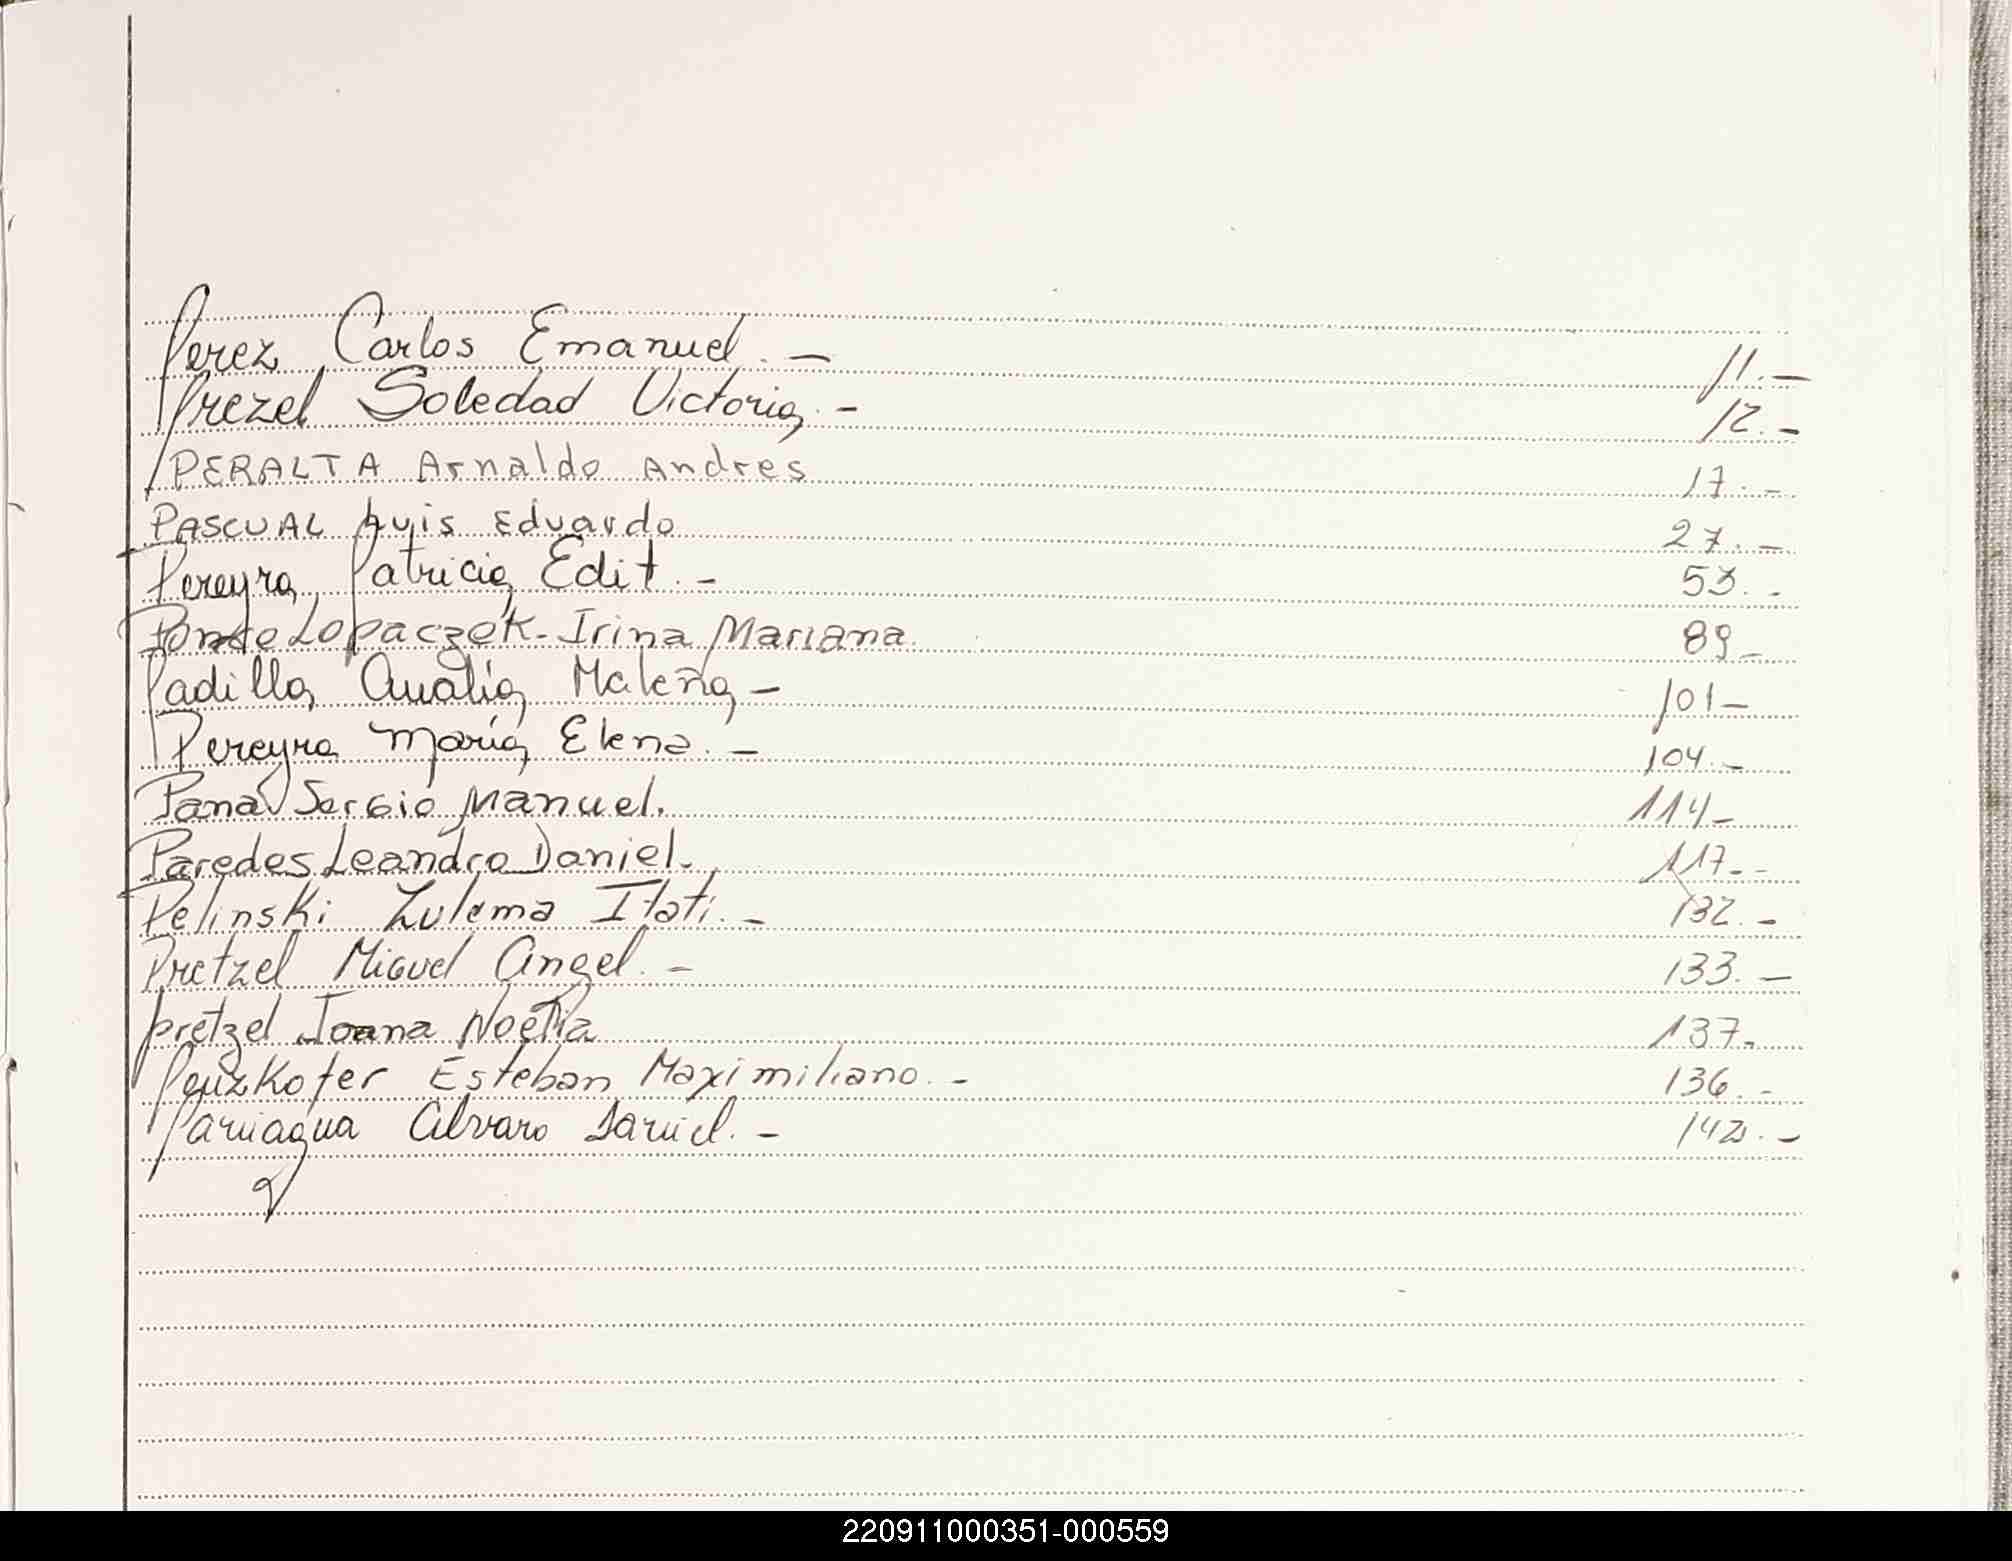 Perez Carlos Emanuel. — 11. —
Prezel Soledad Victoria. - 12. -
PERALTA Arnaldo Andres 17. -
PASCUAL Luis Eduardo 27. -
Pereyra Patricia Edit. - 53. -
Ponce Lopaczek - Irina Mariana. 89 -
Padilla Analía Malena - 101 -
Pereyra María Elena. - 104. -
Pana Sergio Manuel. 114 -
Paredes Leandro Daniel. 117. -
Pelinski Zulema Itatí. - 132. -
Pretzel Miguel Angel. - 133. -
Pretzel Joana Noelia 137.
Penzkofer Esteban Maximiliano. - 136. -
Paniagua Alvaro Daniel. - 142. -
220911000351-000559